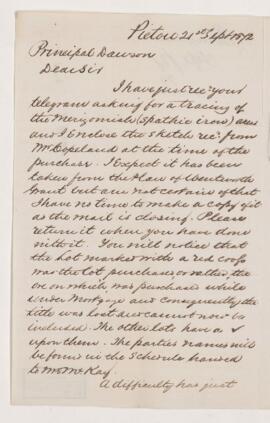 Pictou 21st Sept 1872
Principal Dawson
Dear Sir
I have just recd your
telegram asking for a tracing of
the Merigomish (Spathic iron) areas
and I Enclose the Sketch recd from
Mr Copeland at the time of the
purchase. I Expect it has been
taken from the Plan of Wentworth
Grant but am not certain of that
I have no time to make a copy of it
as the mail is closing. Please
return it when you have done
with it. You will notice that
the lot marked with a red cross
was the lot purchased or rather, the
ore on which, was purchased while
under Mortgage and consequently the
title was lost and cannot now be
included. The other lots have a ✓
upon them. The parties names will
be found in the Schedule handed
to Mr McKay.
A difficulty has just